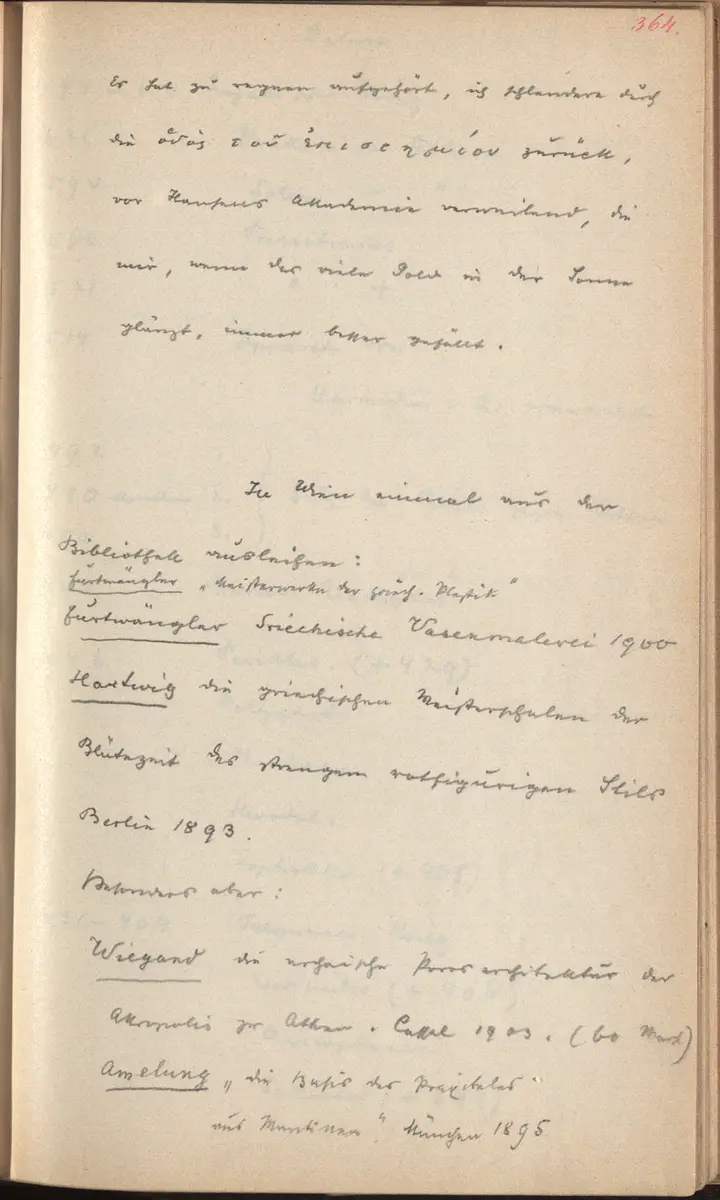 364.
Es hat zu regnen aufgehört, ich schlendere durch
die ὁδὸς τοῦ ἐπιστημίου zurück,
vor Hansens Akademie verweilend, die
mir, wenn das viele Gold in der Sonne
glänzt, immer besser gefällt.
In Wien einmal aus der
Bibliothek ausleihen:
Furtwängler „Meisterwerke der griech. Plastik"
Furtwängler Griechische Vasenmalerei 1900
Hartwig die griechischen Meisterschalen der
Blütezeit des strengen rotfigurigen Stils
Berlin 1893.
Besonders aber:
Wiegand die archaische Porosarchitektur der
Akropolis zu Athen. Cassel 1903. (60 Mark)
Amelung „die Basis des Praxiteles
aus Mantinea". München 1895